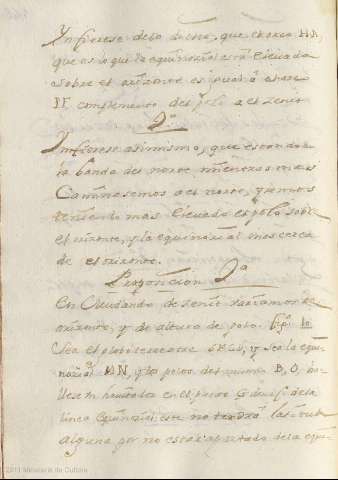 Ynfierese de lo dicho, que el arco HA,
que es lo que la equinoxial está elevada
sobre el orizonte es igual a el arco
complemento del polo a el zenit
2ª
Ynfierese asimismo, que estando a
la banda del norte mientras mas
caminasemos a el norte, yremos
teniendo mas elevado el polo sobre
el orizonte, y la equinoxial mas cerca
de el orizonte.
Proposicion 2ª
En mudando de zenit variamos de
orizonte, y de altura de polo.
Sea el globo terrestre y sea la equi
noxial MN, y los polos del mundo B, O,
en el punto G de la
linea equinoxial este no tendra latitud
alguna por no estar apartado de la equi
2011 Ministerio de Cultura